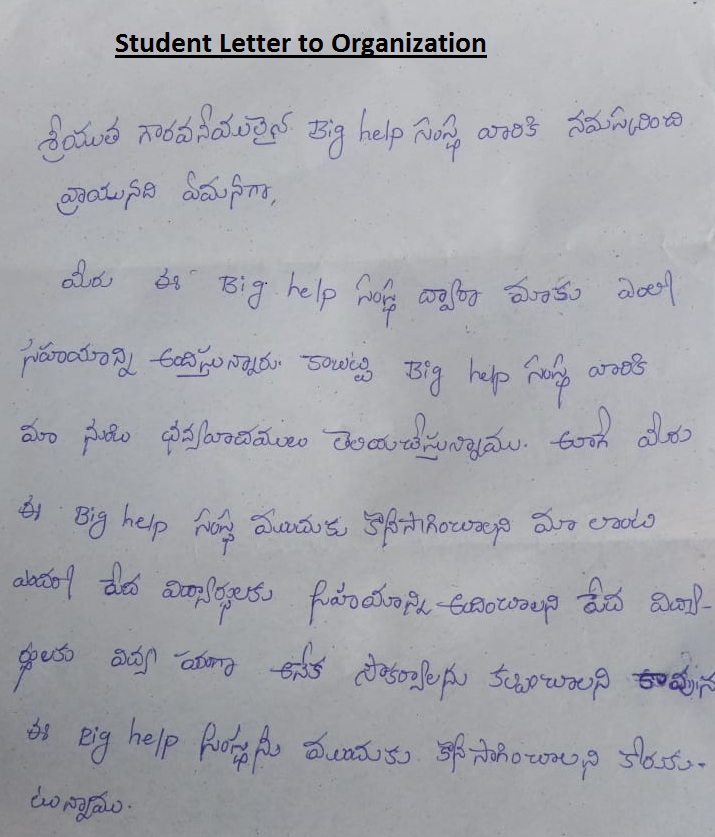 Student Letter to Organization
శ్రీయుత గౌరవనీయులైన Big help సంస్థ వారికి నమస్కరించి
వ్రాయునది ఏమనగా,
మీరు ఈ Big help సంస్థ ద్వారా మాకు ఎంతో
సహయాన్ని అందిస్తున్నారు. కాబట్టి Big help సంస్థ వారికి
మా నుండి ధన్యవాదములు తెలియచేస్తున్నాము. అలాగే మీరు
ఈ Big help సంస్థ ముందుకు కొనసాగించాలని మా లాంటి
ఎందరో పేద విద్యార్థులకు సహయాన్ని అందించాలని పేద విద్యా-
ర్థులకు విద్య యొక్క అనేక సౌకర్యాలను కల్పించాలని కావున
ఈ Big help సంస్థను ముందుకు కొనసాగించాలని కోరుకుం-
టున్నాము.